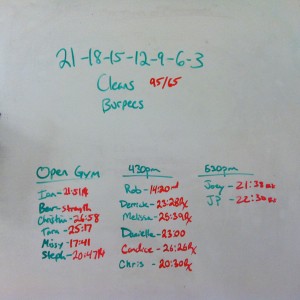 21-18-15-12-9-6-3
Cleans 95/65
Burpees
Open Gym
Ian - 21:51
Bear - strength
Christin - 26:58
Tara - 25:17
Missy - 17:41
Steph - 20:47
430pm
Rob - 14:20
Derrick - 23:28Rx
Melissa - 25:39Rx
Danielle - 23:00
Candice - 26:26Rx
Chris - 20:30Rx
530pm
Joey - 21:38
JP - 22:30